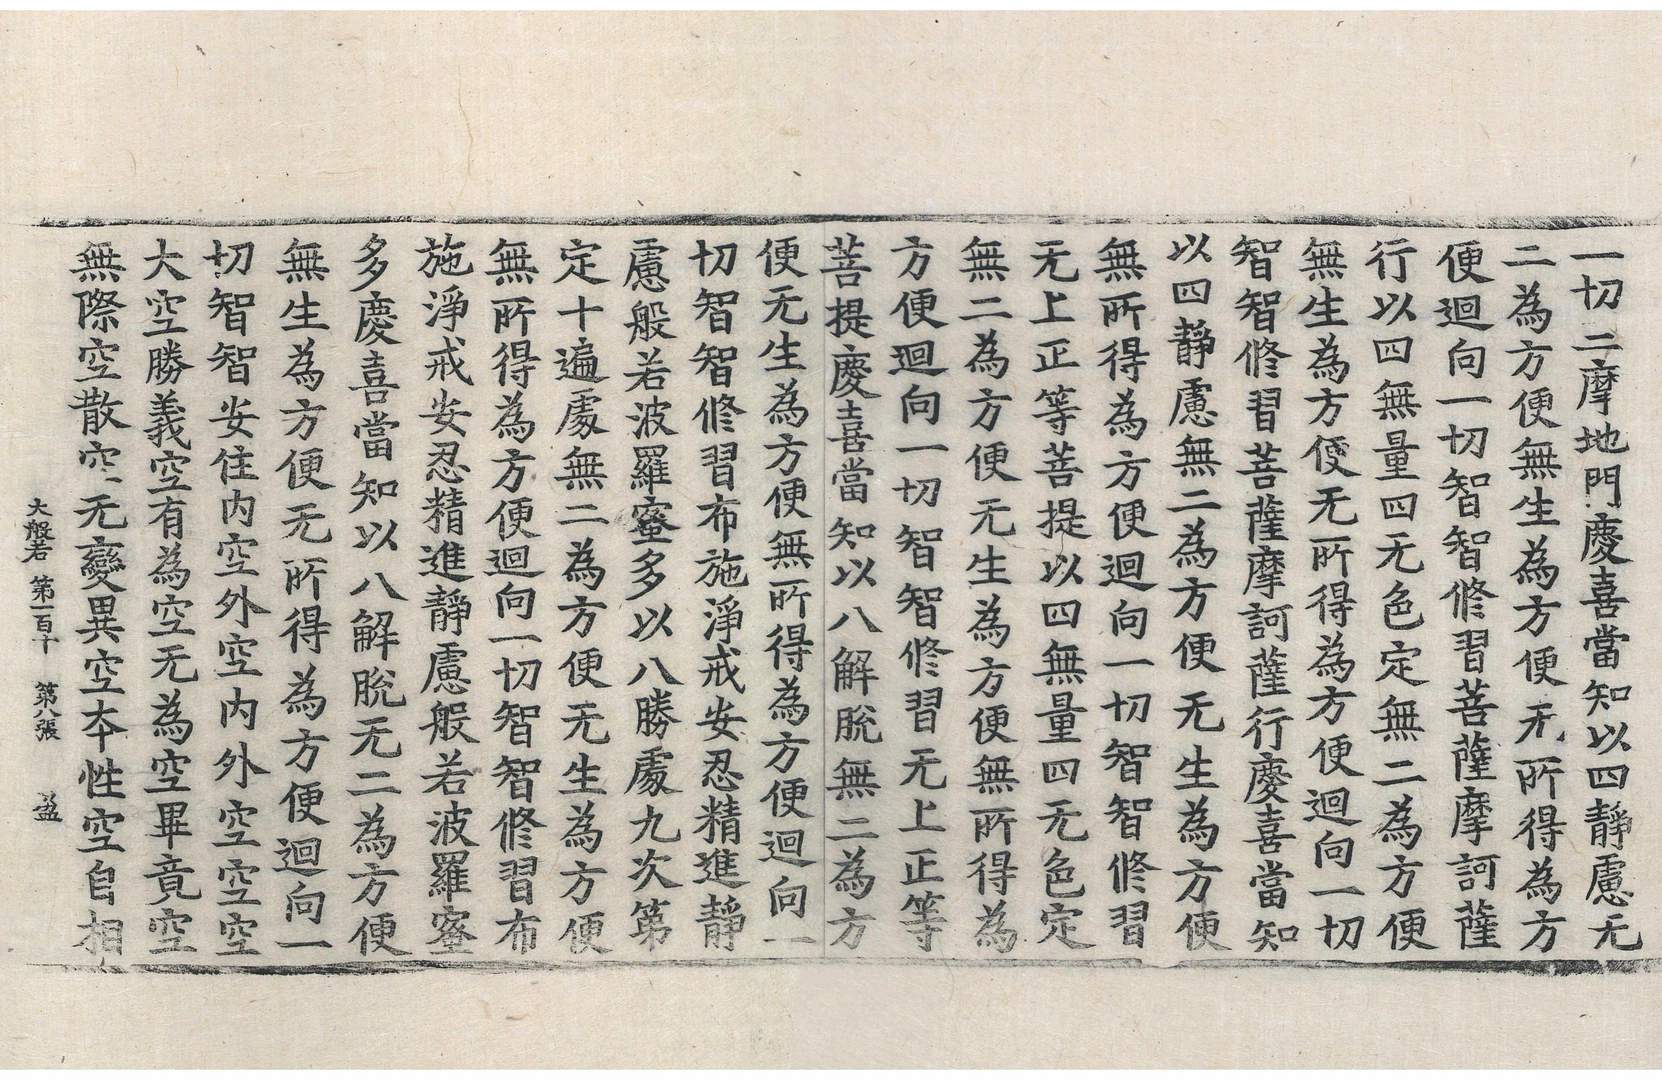 一切三摩地門慶喜當知以四靜慮无
二為方便無生為方便无所得為方
便迴向一切智智修習菩薩摩訶薩
行以四無量四无色定無二為方便
無生為方便无所得為方便迴向一切
智智修習菩薩摩訶薩行慶喜當知
以四靜慮無二為方便无生為方便
無所得為方便迴向一切智智修習
无上正等菩提以四無量四无色定
無二為方便无生為方便無所得為
方便迴向一切智智修習无上正等
菩提慶喜當知以八解脫無二為方
便无生為方便無所得為方便迴向一
切智智修習布施淨戒安忍精進靜
慮般若波羅蜜多以八勝處九次第
定十遍處無二為方便无生為方便
無所得為方便迴向一切智智修習布
施淨戒安忍精進靜慮般若波羅蜜
多慶喜當知以八解脫无二為方便
無生為方便无所得為方便迴向一
切智智安住內空外空內外空空空
大空勝義空有為空无為空畢竟空
無際空散空无變異空本性空自相
大般若 第一百十 第八張 益